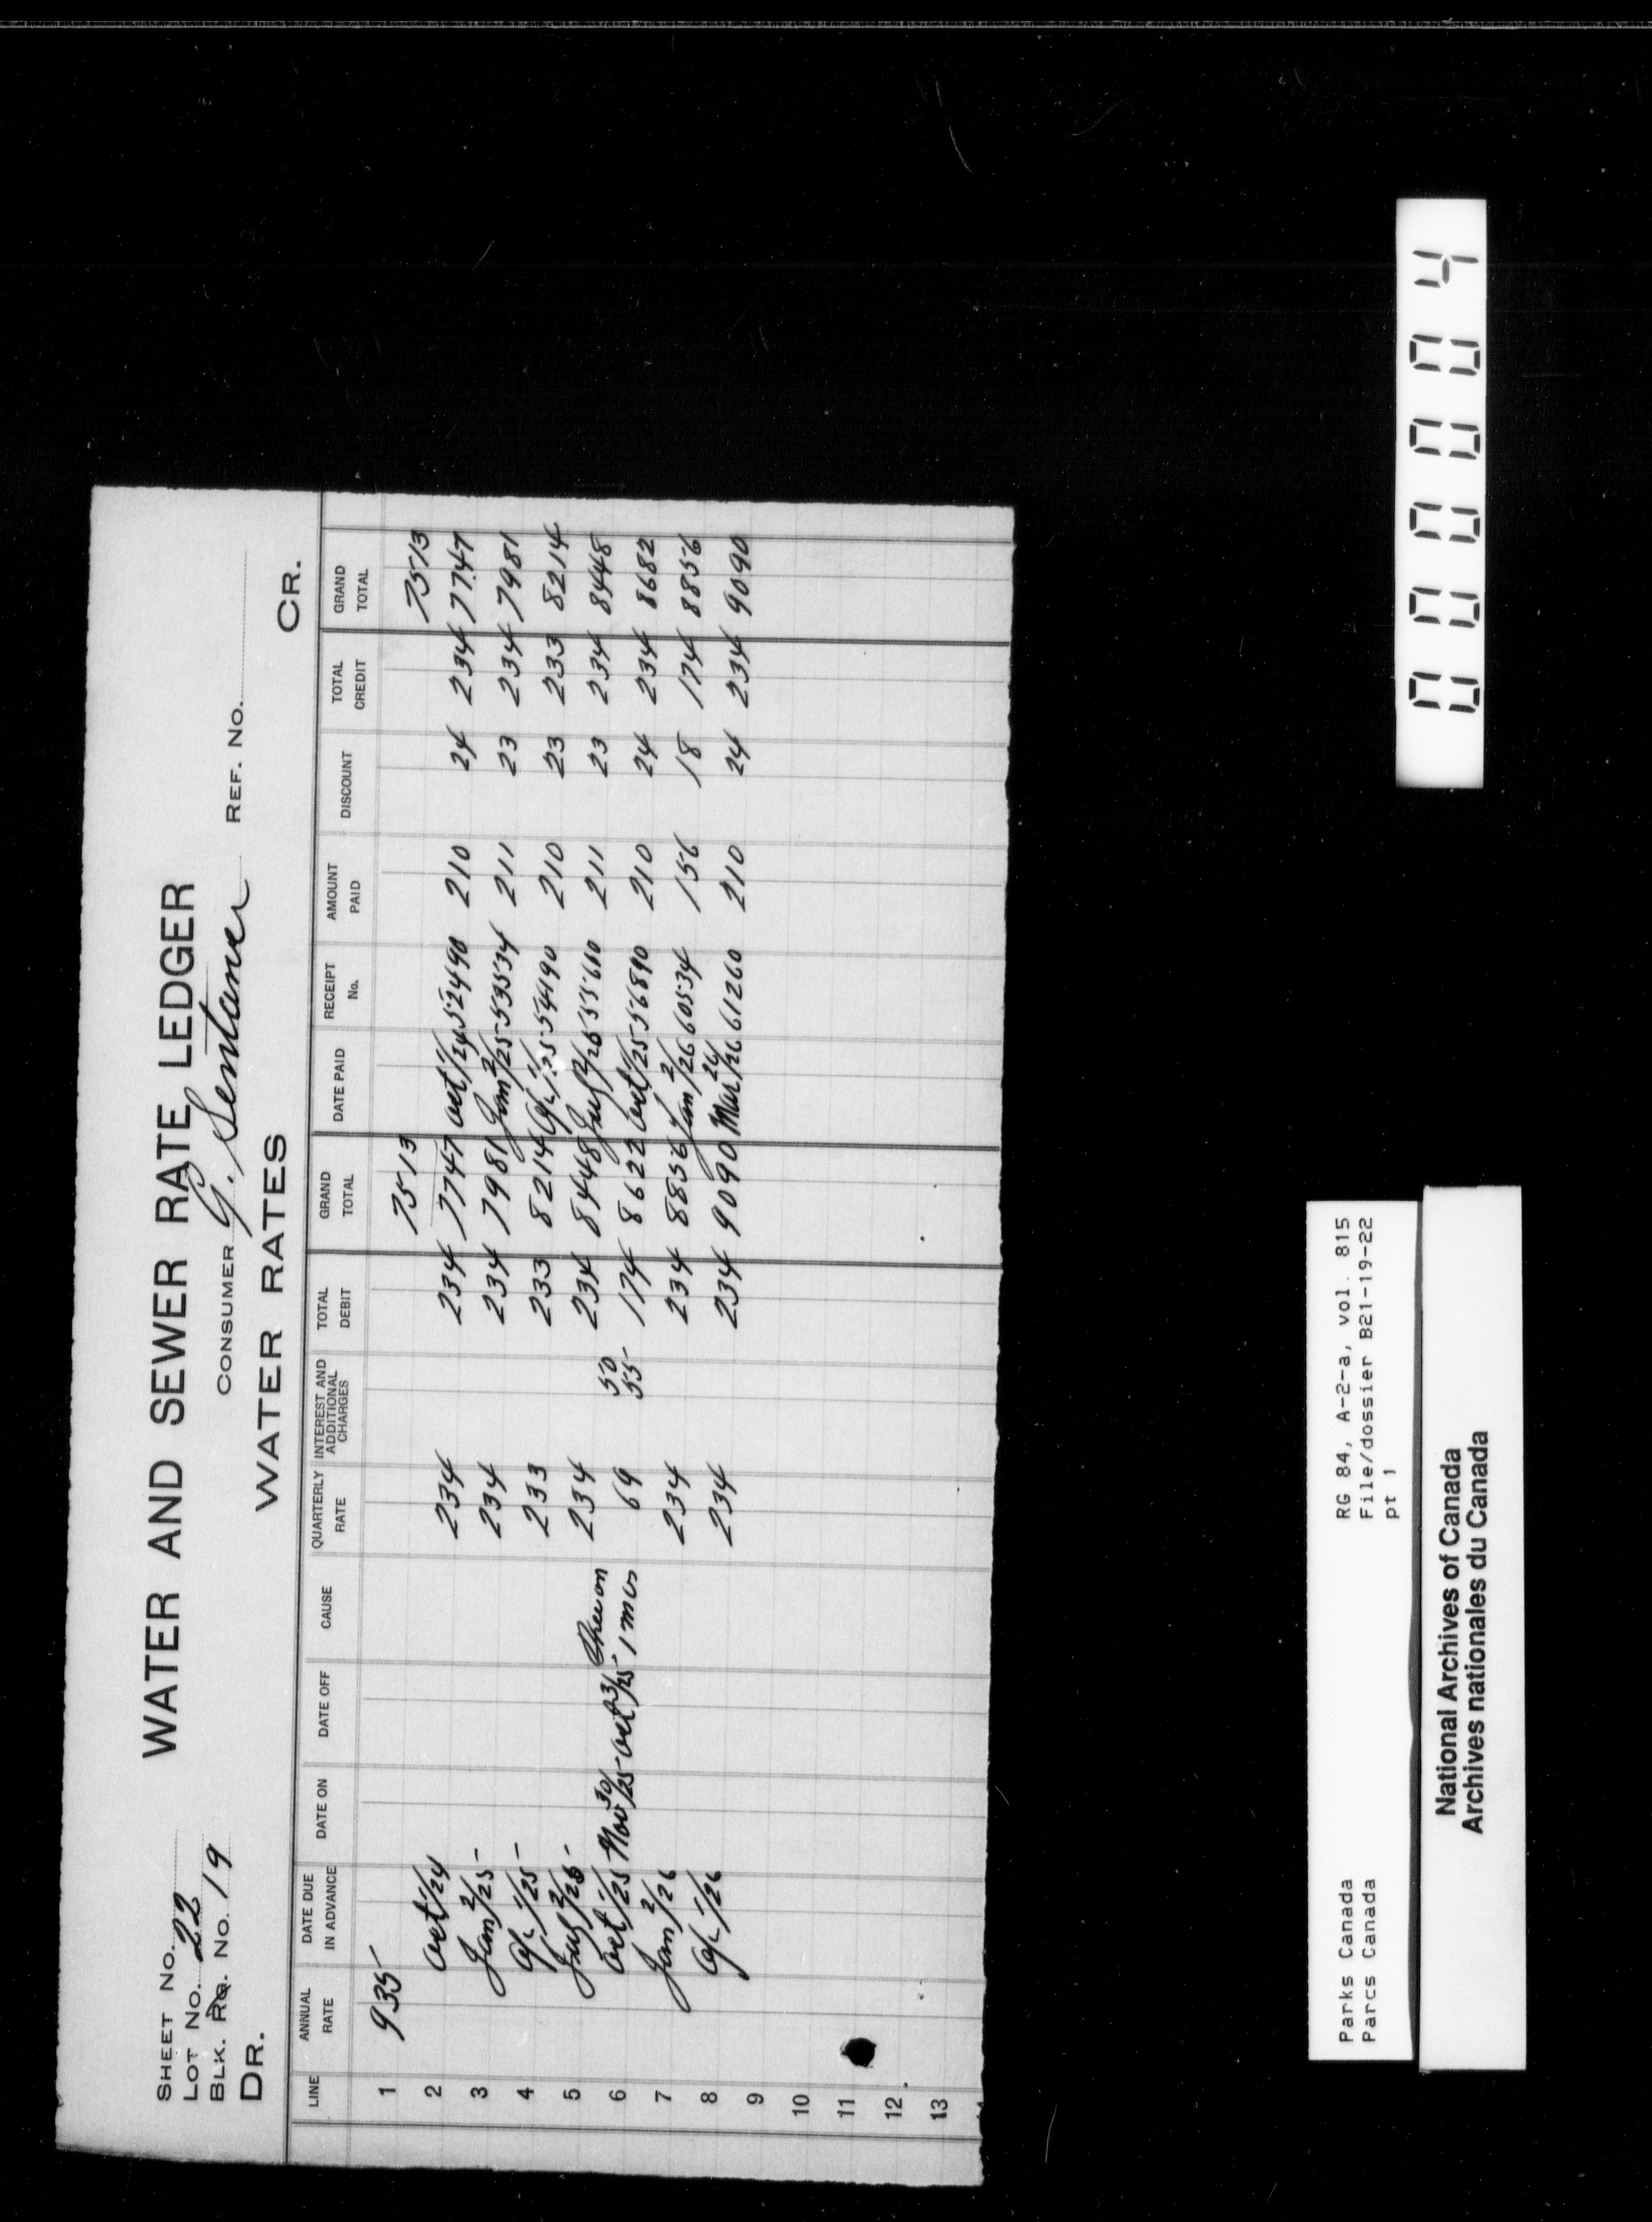 WATER AND SEWER RATE LEDGER
SHEET NO.
LOT NO. 22
CONSUMER G. Sentance REF. NO.
BLK. RG. NO. 19
DR. WATER RATES CR.
LINE ANNUAL RATE DATE DUE IN ADVANCE DATE ON DATE OFF CAUSE QUARTERLY RATE INTEREST AND ADDITIONAL CHARGES TOTAL DEBIT GRAND TOTAL DATE PAID RECEIPT No. AMOUNT PAID DISCOUNT TOTAL CREDIT GRAND TOTAL
1 935 7513 7513
2 Oct 1/24 234 234 7747 Oct 1/24 52490 210 24 234 7747
3 Jan 2/25 234 234 7981 Jan 2/25 53534 211 23 234 7981
4 Ap 1/25 233 233 8214 Ap 1/25 54190 210 23 233 8214
5 July 2/25 234 50 234 8448 July 2/25 55610 211 23 234 8448
6 Oct 1/25 Nov 30/25 Oct 31/25 1 mos 69 55 174 8622 Oct 1/25 56890 210 24 234 8682
7 Jan 2/26 234 234 8856 Jan 2/26 60534 156 18 174 8856
8 Ap 1/26 234 234 9090 Mar 26/26 61260 210 24 234 9090
9
10
11
12
13
Parks Canada RG 84, A-2-a, vol. 815
Parcs Canada File/dossier B21-19-22
pt 1
National Archives of Canada
Archives nationales du Canada
000004